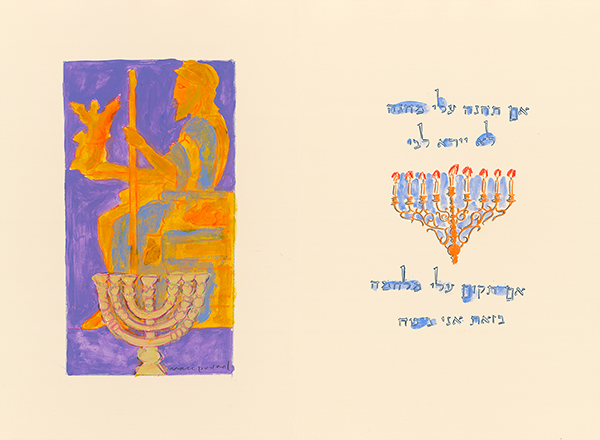 אם תחנה עלי מחנה
לא יירא לבי
אם תקום עלי מלחמה
בזאת אני בוטח